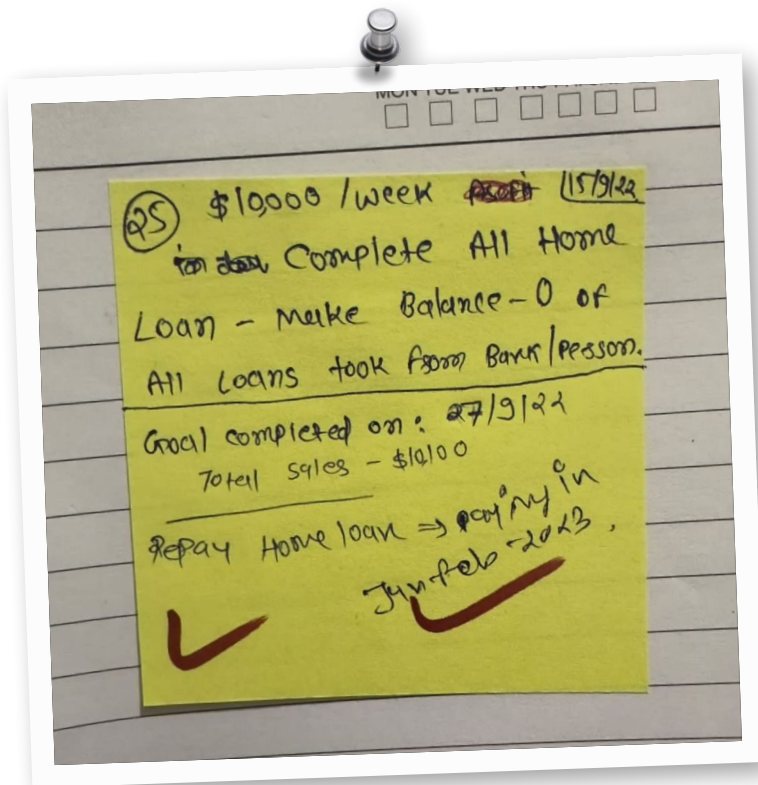 MON TUE WED THU
25 $10,000 /week 15/9/22
Complete All Home
Loan - Make Balance - 0 of
All Loans took from Bank/Person.
Goal completed on: 27/9/22
Total Sales - $10,100
Repay Home loan ⇒ paying in
Jan-Feb-2023.